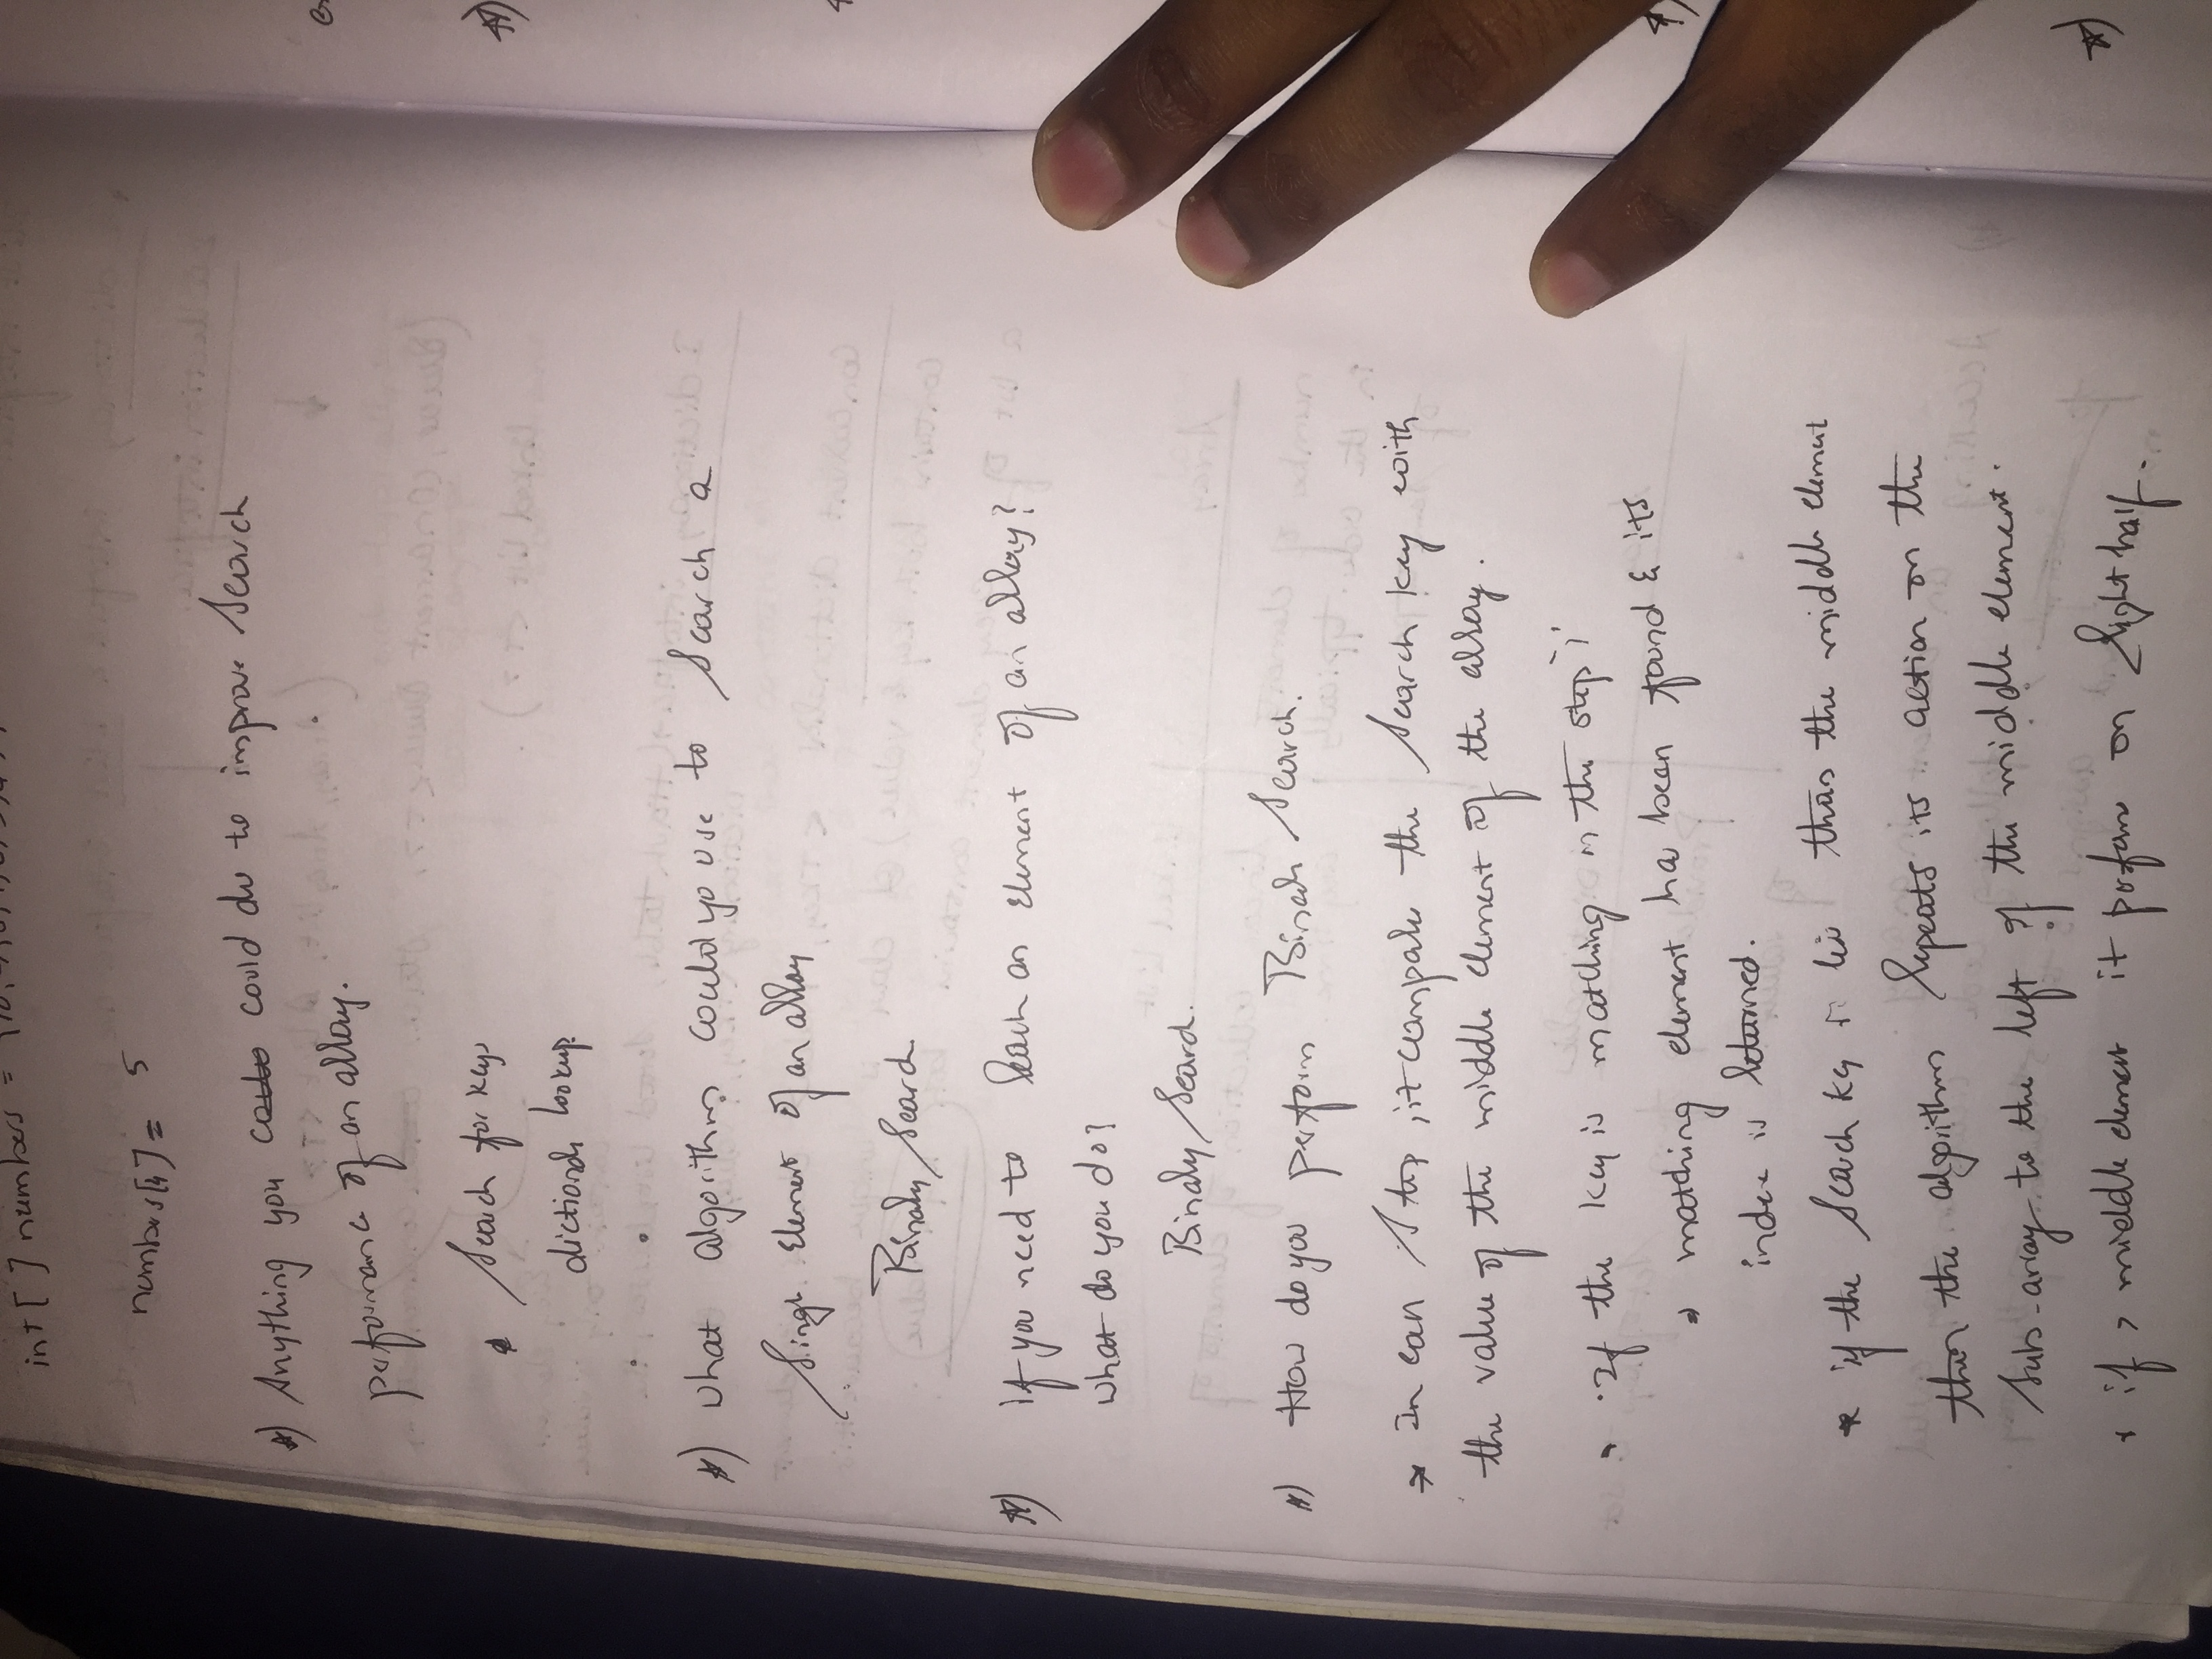 int[ ] numbers =
numbers[4] = 5
*) Anything you could do to improve Search
performance of an array.
Search for keys
lookup
*) what algorithms could yo use to Search a
Singl Element of an array
Binary Search
*) if you need to Search an Element of an array?
what do you do?
Binary Search.
*) How do you perform Binary Search.
* In each Step, it compare the Search key with
the value of the middle element of the array.
* If the key is matching in the step i
⇒ matching element has been found & its
index is returned.
* if the Search key is less than the middle element
then the algorithm repeats its action on the
Sub-array to the left of the middle element.
* if > middle element it perform on right half.